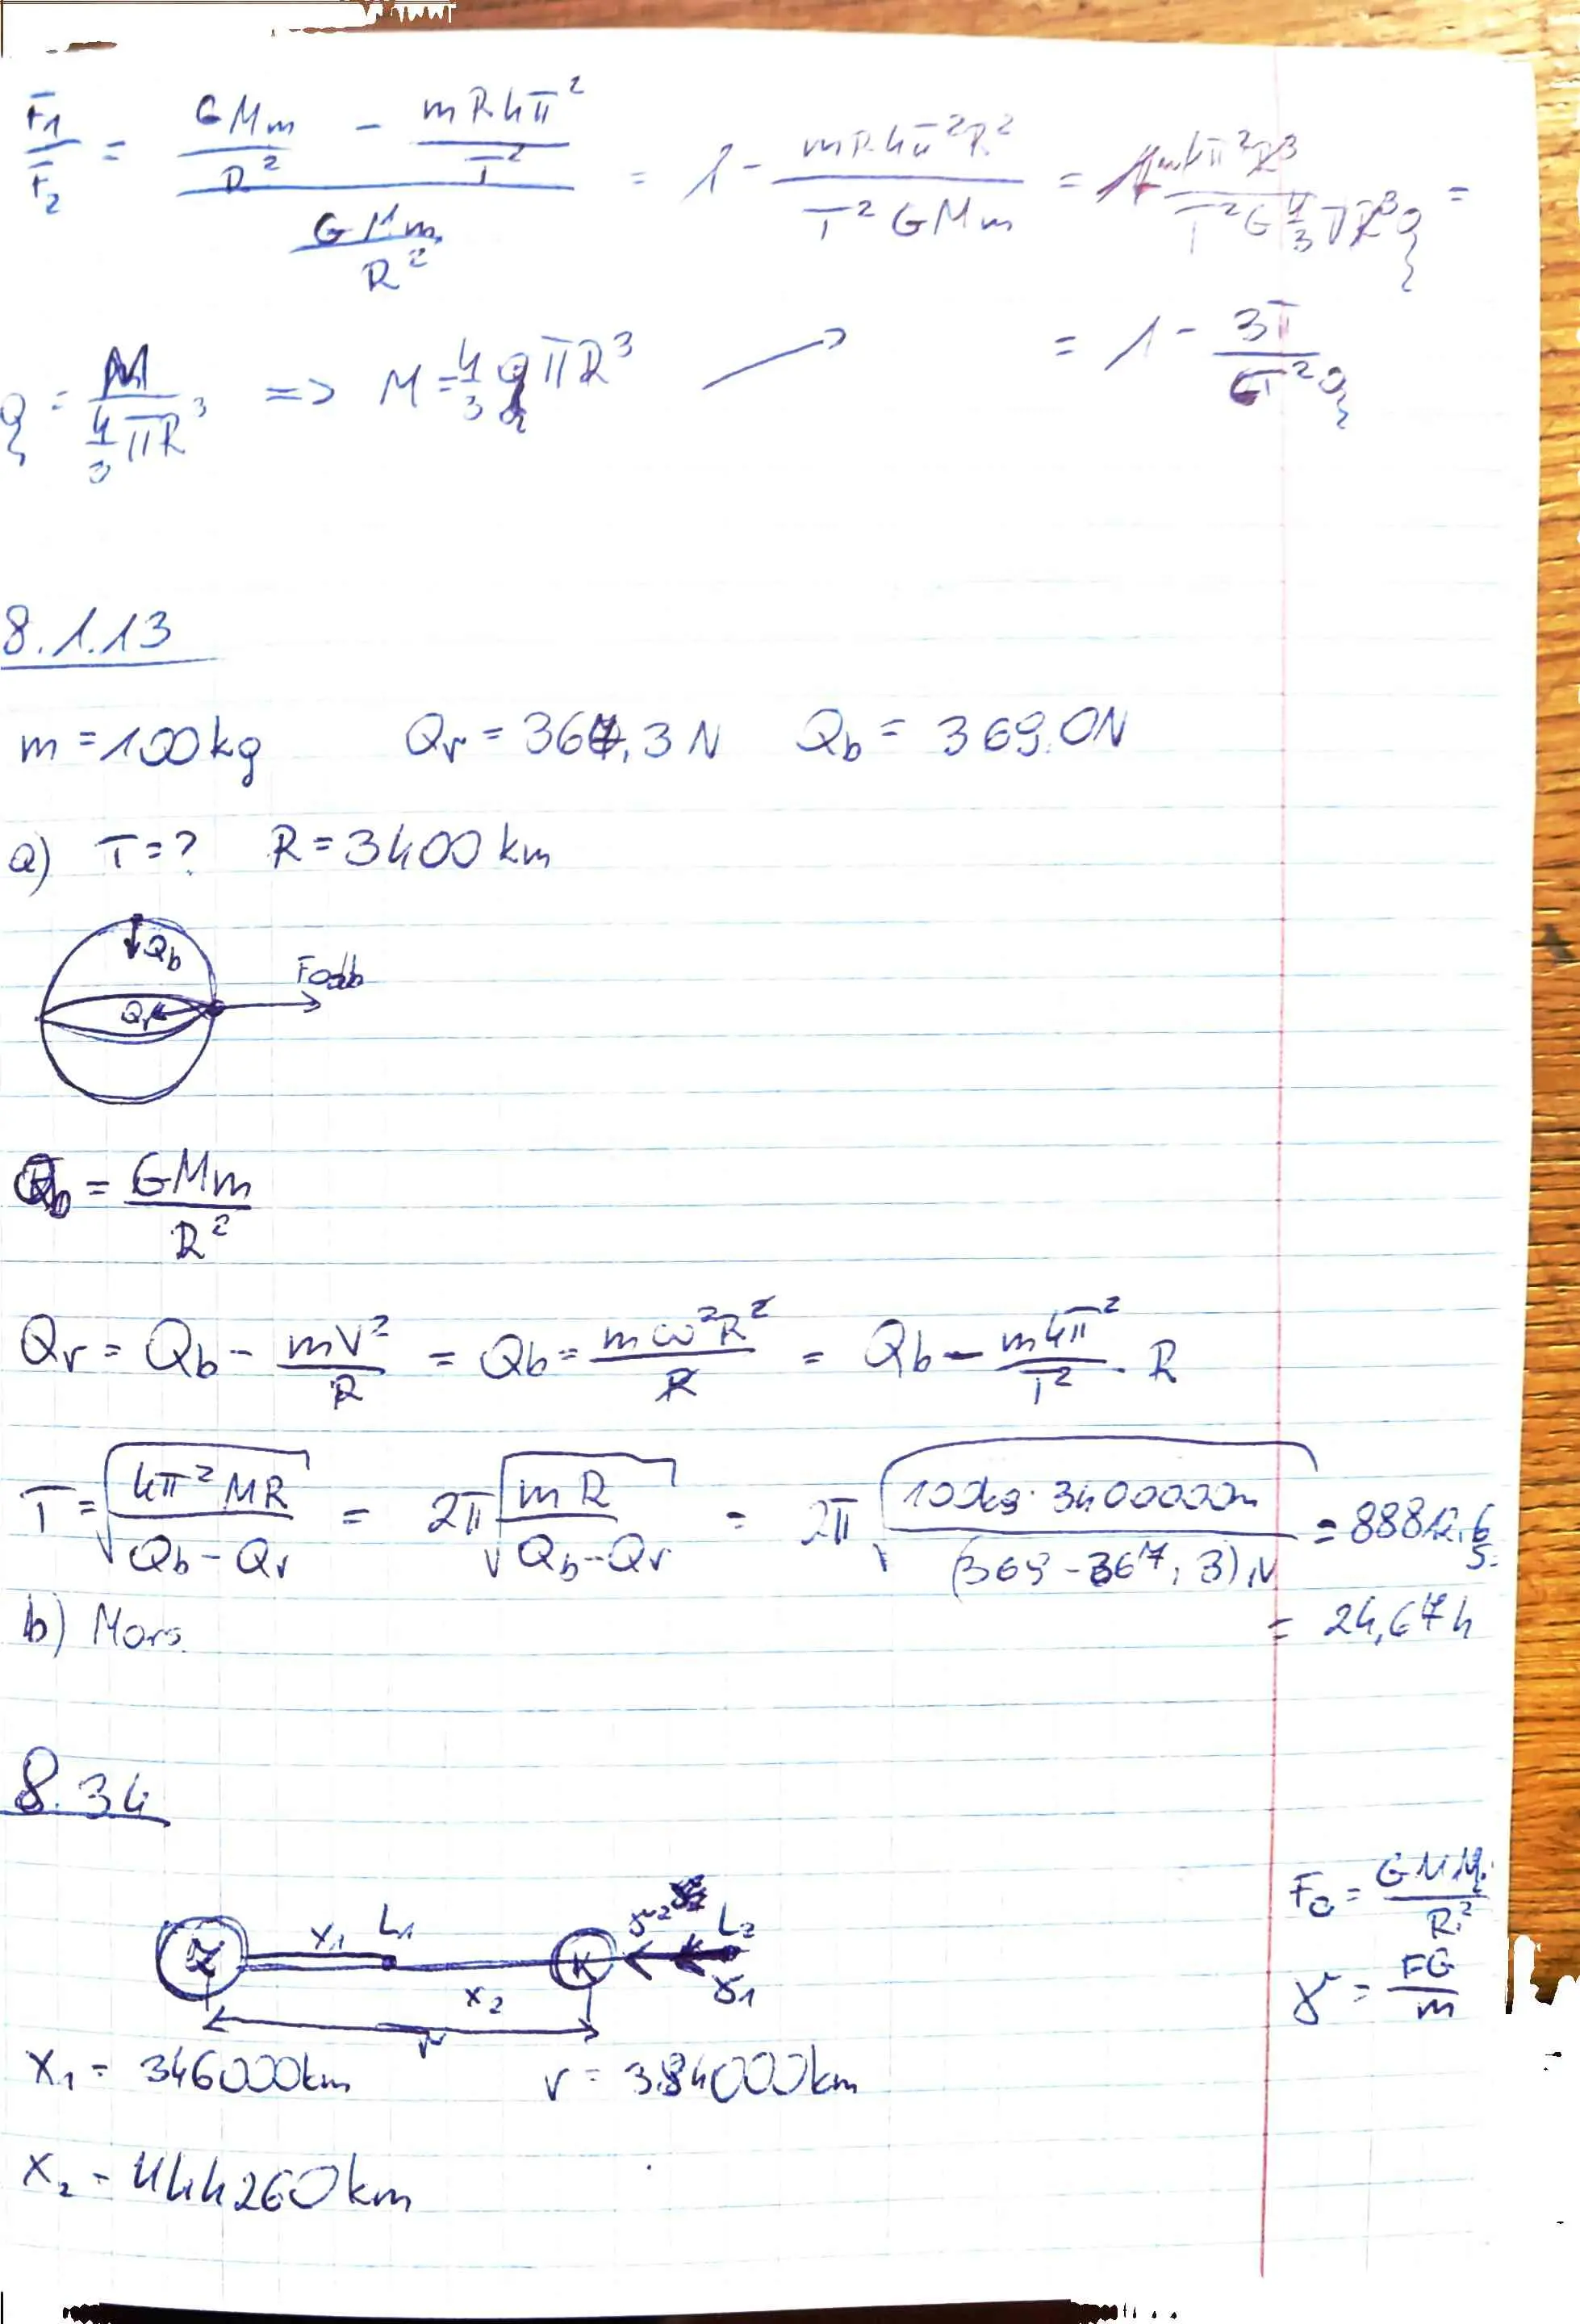 F₁/F₂ = (GMm/R² - mR4π²/T²)/(GMm/R²) = 1 - mR4π²R²/(T²GMm) = 1 - m4π²R³/(T²G 4/3 πR³ρ) =
ρ = M/(4/3 πR³) => M = 4/3 ρπR³ → = 1 - 3π/(GT²ρ)
8.1.13
m = 100kg Qr = 367,3N Qb = 369.0N
a) T=? R = 3400 km
Qb
Fodb
Qr
Qb = GMm/R²
Qr = Qb - mV²/R = Qb = mω²R²/R = Qb - m4π²/T² · R
T = √(4π²MR/(Qb-Qr)) = 2π√(mR/(Qb-Qr)) = 2π√(100kg·3400000m/((369-367,3)N)) = 88812,6 s.
b) Mars. = 24,67h
8.34
FG = GMM/R²
Z x₁ L₁ K γ₂ L₂
x₂ γ₁
γ = FG/m
r
x₁ = 346000km r = 384000km
x₂ = 444260km